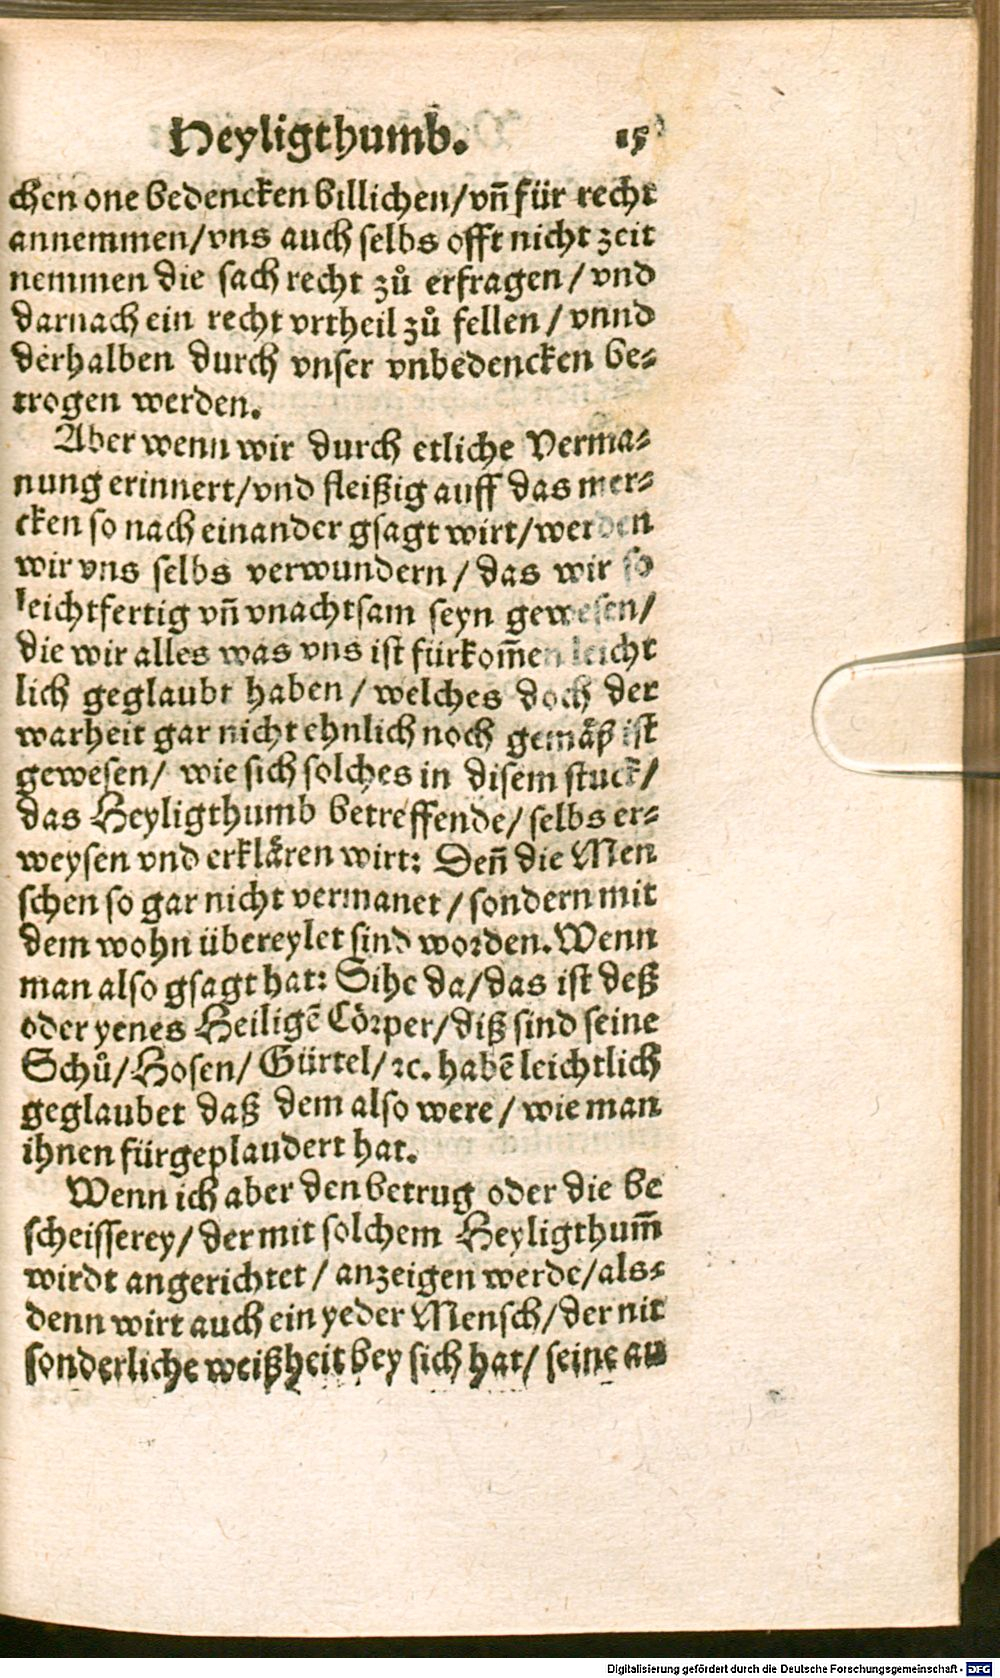 Heyligthumb. 15
chen one bedencken billichen/vñ für recht
annemmen/vns auch selbs offt nicht zeit
nemmen die sach recht zů erfragen/vnd
darnach ein recht vrtheil zů fellen/vnnd
derhalben durch vnser vnbedencken be⸗
trogen werden.
Aber wenn wir durch etliche Verma⸗
nung erinnert/vnd fleißig auff das mer⸗
cken so nach einander gsagt wirt/werden
wir vns selbs verwundern/das wir so
leichtfertig vñ vnachtsam seyn gewesen/
die wir alles was vns ist fürkom̃en leicht
lich geglaubt haben/welches doch der
warheit gar nicht ehnlich noch gemåß ist
gewesen/ wie sich solches in disem stuck/
das Heyligthumb betreffende/selbs er⸗
weysen vnd erklåren wirt: Deñ die Men
schen so gar nicht vermanet/sondern mit
dem wohn übereylet sind worden. Wenn
man also gsagt hat: Sihe da/das ist deß
oder yenes Heiligẽ Cörper/diß sind seine
Schů/Hosen/Gürtel/ꝛc. habẽ leichtlich
geglaubet daß dem also were/wie man
ihnen fürgeplaudert hat.
Wenn ich aber den betrug oder die be
scheisserey/der mit solchem Heyligthum̃
wirdt angerichtet/anzeigen werde/als⸗
denn wirt auch ein yeder Mensch/der nit
sonderliche weißheit bey sich hat/seine au
Digitalisierung gefördert durch die Deutsche Forschungsgemeinschaft - DFG